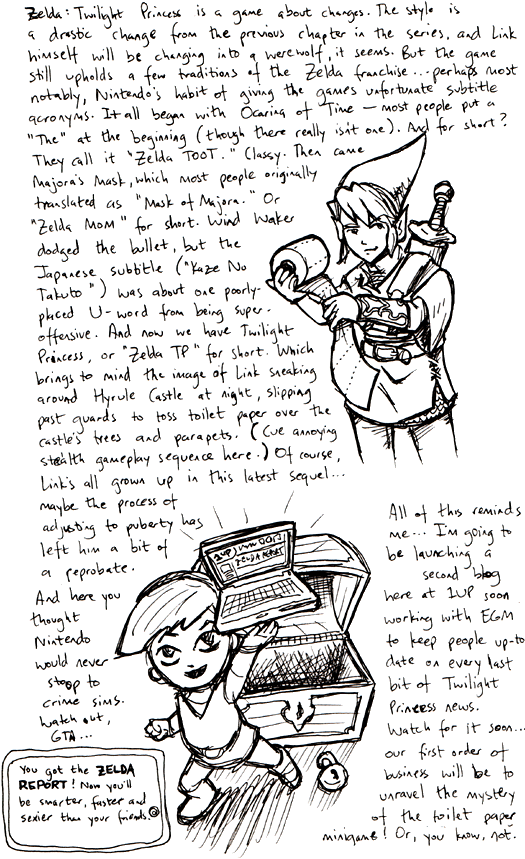 Zelda: Twilight Princess is a game about changes. The style is
a drastic change from the previous chapter in the series, and Link
himself will be changing into a werewolf, it seems. But the game
still upholds a few traditions of the Zelda franchise... perhaps most
notably, Nintendo's habit of giving the games unfortunate subtitle
acronyms. It all began with Ocarina of Time — most people put a
"The" at the beginning (though there really isn't one). And for short?
They call it "Zelda TOOT." Classy. Then came
Majora's Mask, which most people originally
translated as "Mask of Majora." Or
"Zelda MOM" for short. Wind Waker
dodged the bullet, but the
Japanese subtitle ("Kaze No
Takuto") was about one poorly-
placed U-word from being super-
offensive. And now we have Twilight
Princess, or "Zelda TP" for short. Which
brings to mind the image of Link sneaking
around Hyrule Castle at night, slipping
past guards to toss toilet paper over the
castle's trees and parapets. (Cue annoying
stealth gameplay sequence here.) Of course,
Link's all grown up in this latest sequel...
maybe the process of
adjusting to puberty has
left him a bit of
a reprobate.
And here you
thought
Nintendo
would never
stoop to
crime sims.
Watch out,
GTA...
1UP
ZELDA REPORT
You got the ZELDA
REPORT! Now you'll
be smarter, faster and
sexier than your friends.
All of this reminds
me... I'm going to
be launching a
second blog
here at 1UP soon
working with EGM
to keep people up-to
date on every last
bit of Twilight
Princess news.
Watch for it soon...
our first order of
business will be to
unravel the mystery
of the toilet paper
minigame! Or, you know, not.